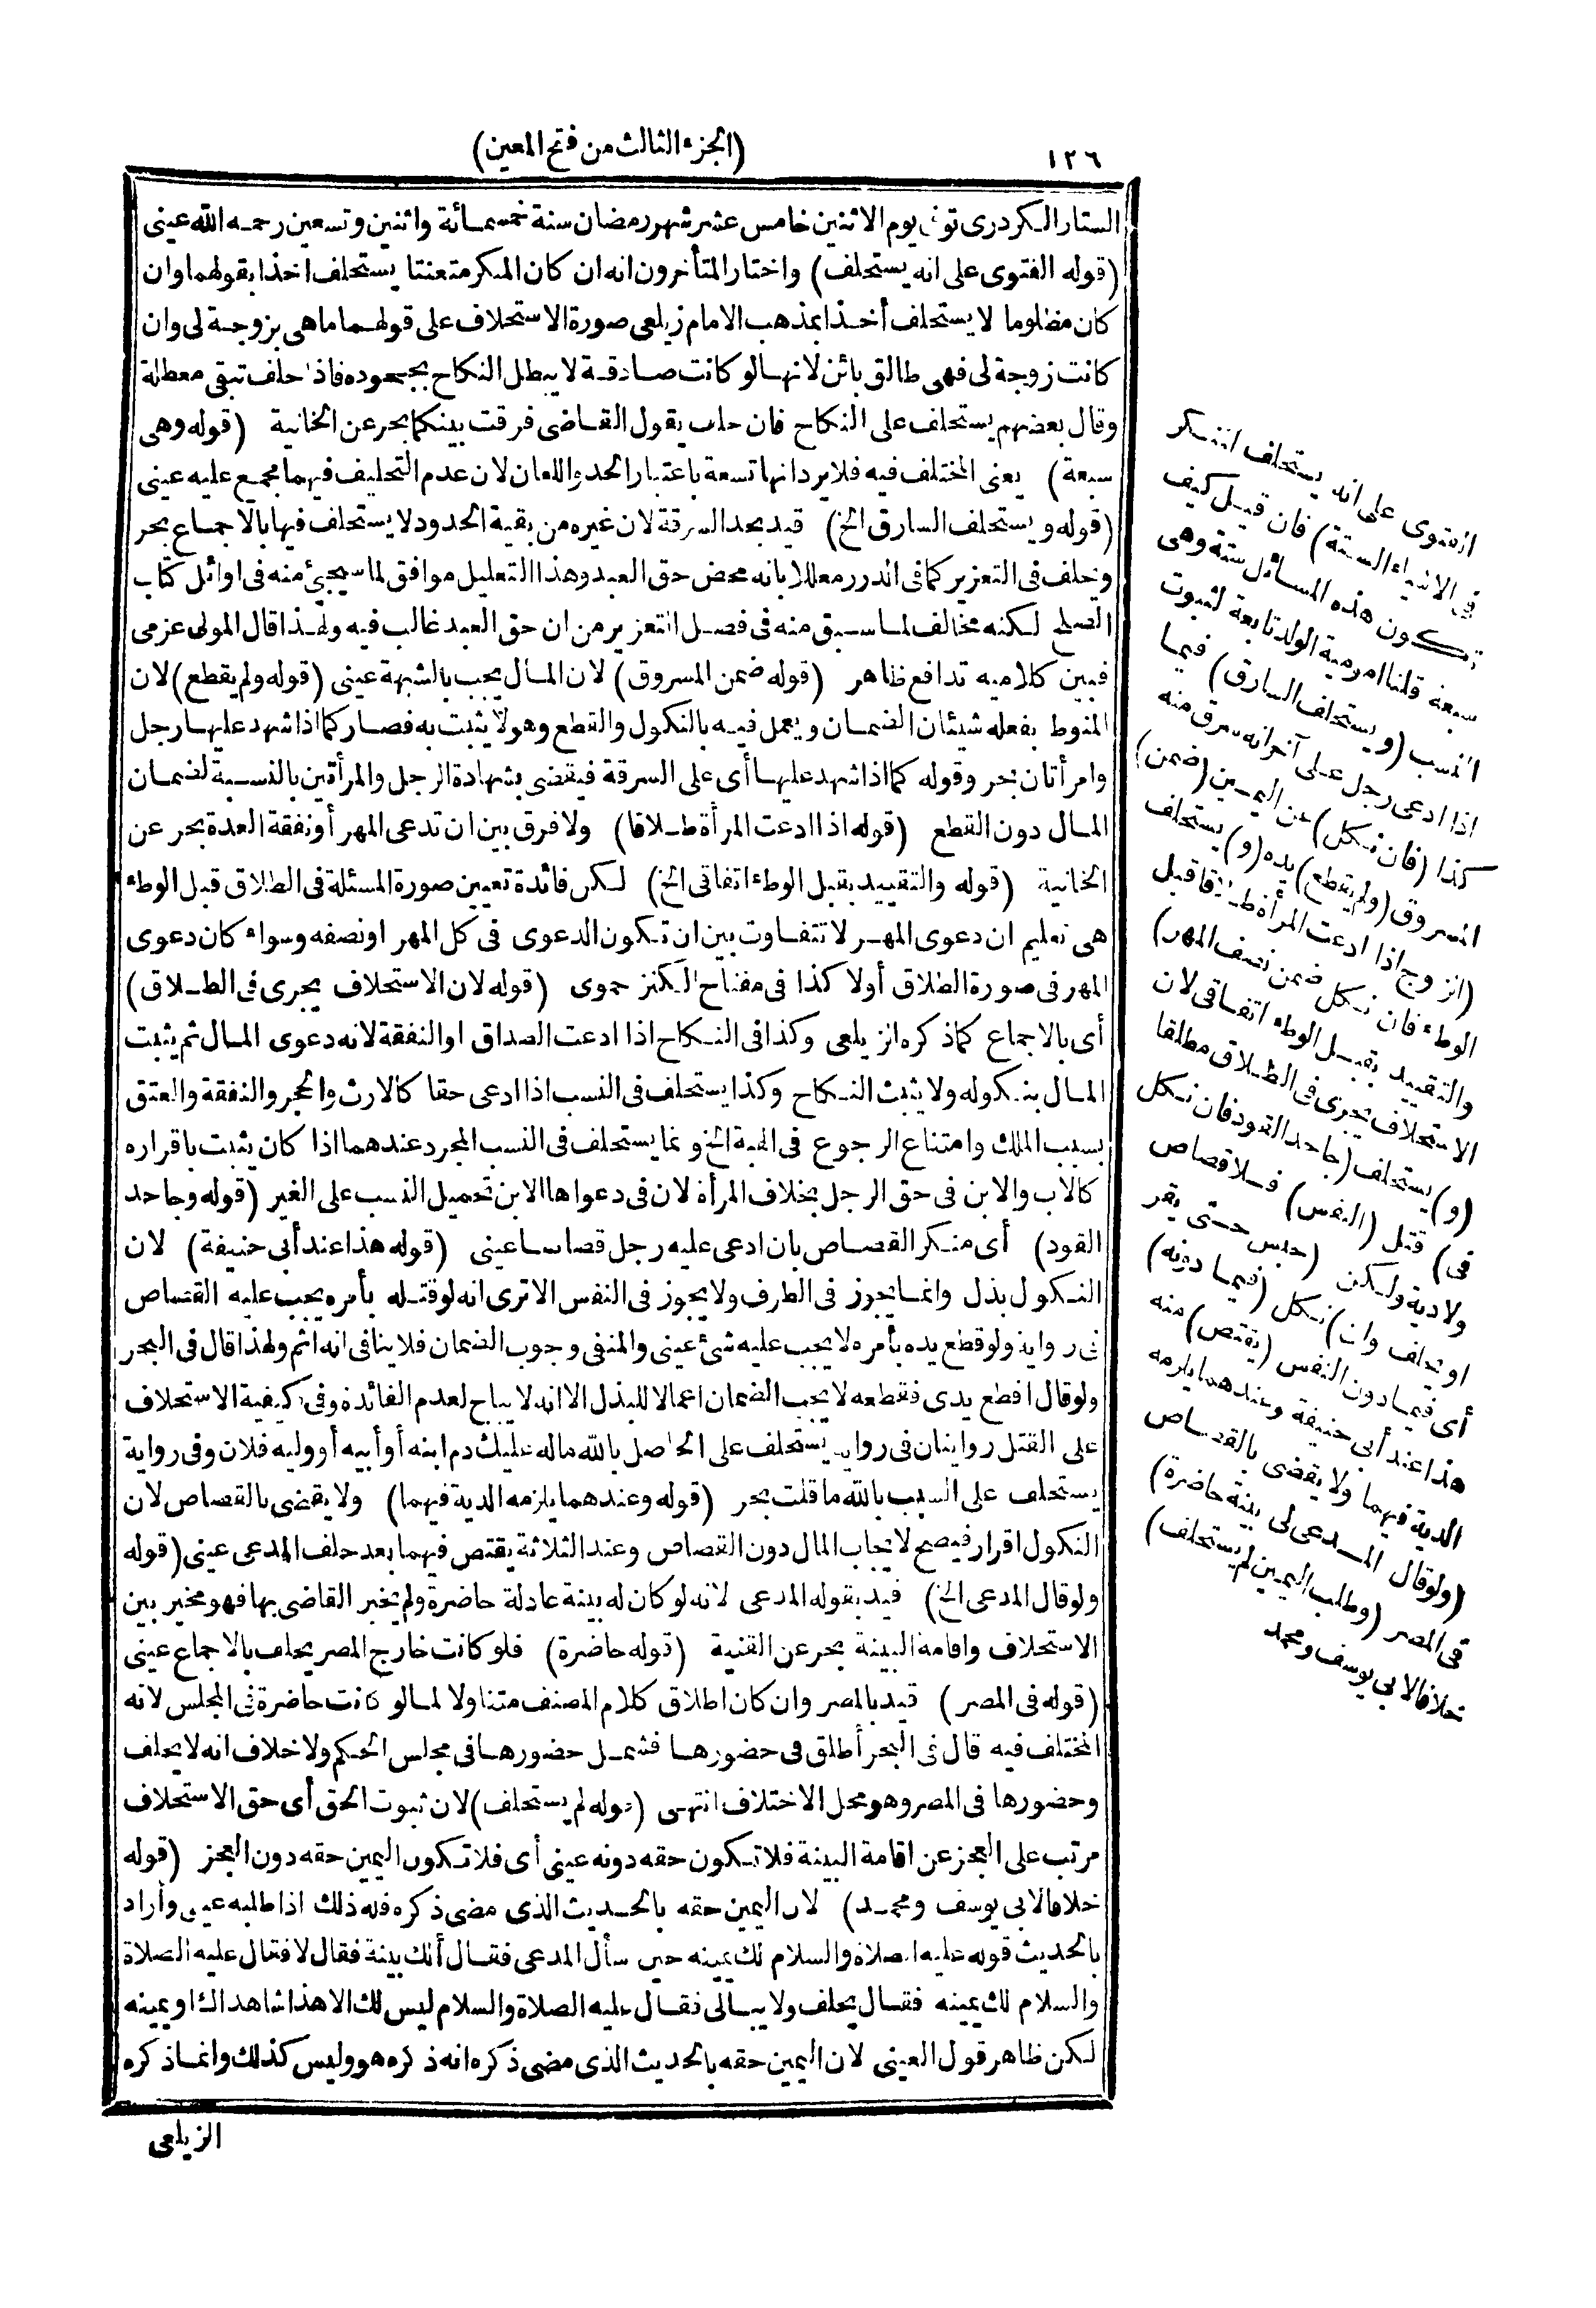 ١٢٦
(الجزء الثالث من فتح المعين)
الستار الكردرى توفى يوم الاثنين خامس عشر شهر رمضان سنة خمسمائة واثنين وتسعين رحمه الله عينى
(قوله الفتوى على انه يستحلف) واختار المتأخرون انه ان كان المنكر متعنتا يستحلف اخذا بقولهما وان
كان مظلوما لا يستحلف أخذا بمذهب الامام زيلعى صورة الاستحلاف على قولهما ما هى بزوجة لى وان
كانت زوجة لى فهى طالق بائن لانها لو كانت صادقة لا يبطل النكاح بجحوده فاذا حلف تبقى معطلة
وقال بعضهم يستحلف على النكاح فان حلف يقول القاضى فرقت بينكما بحر عن الخانية (قوله وهى
سبعة) يعنى المختلف فيه فلا يرد انها تسعة باعتبار الحد واللعان لان عدم التحليف فيهما مجمع عليه عينى
(قوله ويستحلف السارق الخ) قيد بحد السرقة لان غيره من بقية الحدود لا يستحلف فيها بالاجماع بحر
ويحلف فى التعزير كما فى الدرر معللا بانه محض حق العبد وهذا التعليل موافق لما سيجئ منه فى اوائل كتاب
الصلح لكنه مخالف لما سبق منه فى فصل التعزير من ان حق العبد غالب فيه ولهذا قال المولى عزمى
فبين كلاميه تدافع ظاهر (قوله ضمن المسروق) لان المال يجب بالشبهة عينى (قوله ولم يقطع) لان
المنوط بفعله شيئان الضمان ويعمل فيه بالنكول والقطع وهو لا يثبت به فصار كما اذا شهد عليها رجل
وامرأتان بحر وقوله كما اذا شهد عليها أى على السرقة فيقضى بشهادة الرجل والمرأتين بالنسبة لضمان
المال دون القطع (قوله اذا ادعت المرأة طلاقا) ولا فرق بين ان تدعى المهر أو نفقة العدة بحر عن
الخانية (قوله والتقييد بقبل الوطء اتفاقى الخ) لكن فائدة تعيين صورة المسئلة فى الطلاق قبل الوطء
هى تعليم ان دعوى المهر لا تتفاوت بين ان تكون الدعوى فى كل المهر او نصفه وسواء كان دعوى
المهر فى صورة الطلاق أولا كذا فى مفتاح الكنز حموى (قوله لان الاستحلاف يجرى فى الطلاق)
أى بالاجماع كما ذكره الزيلعى وكذا فى النكاح اذا ادعت الصداق او النفقة لانه دعوى المال ثم يثبت
المال بنكوله ولا يثبت النكاح وكذا يستحلف فى النسب اذا ادعى حقا كالارث والحجر والنفقة والعتق
بسبب الملك وامتناع الرجوع فى الهبة الخ وانما يستحلف فى النسب المجرد عندهما اذا كان يثبت باقراره
كالاب والابن فى حق الرجل بخلاف المرأة لان فى دعواها الابن تحميل النسب على الغير (قوله وجاحد
القود) أى منكر القصاص بان ادعى عليه رجل قصاصا عينى (قوله هذا عند أبى حنيفة) لان
النكول بذل وانما يجوز فى الطرف ولا يجوز فى النفس الاترى انه لو قتله بأمره يجب عليه القصاص
فى رواية ولو قطع يده بأمره لا يجب عليه شئ عينى والمنفى وجوب الضمان فلا ينافى انه اثم ولهذا قال فى البحر
ولو قال اقطع يدى فقطعه لا يجب الضمان اعمالا للبذل الا انه لا يباح لعدم الفائدة وفى كيفية الاستحلاف
على القتل روايتان فى رواية يستحلف على الحاصل بالله ماله عليك دم ابنه أو أبيه أو وليه فلان وفى رواية
يستحلف على السبب بالله ما قتلت بحر (قوله وعندهما يلزمه الدية فيهما) ولا يقضى بالقصاص لان
النكول اقرار فيصح لايجاب المال دون القصاص وعند الثلاثة يقتص فيهما بعد حلف المدعى عينى (قوله
ولو قال المدعى الخ) قيد بقوله المدعى لانه لو كان له بينة عادلة حاضرة ولم يخبر القاضى بها فهو مخير بين
الاستحلاف واقامة البينة بحر عن القنية (قوله حاضرة) فلو كانت خارج المصر يحلف بالاجماع عينى
(قوله فى المصر) قيد بالمصر وان كان اطلاق كلام المصنف متناولا لما لو كانت حاضرة فى المجلس لانه
المختلف فيه قال فى البحر أطلق فى حضورها فشمل حضورها فى مجلس الحكم ولا خلاف انه لا يحلف
وحضورها فى المصر وهو محل الاختلاف انتهى (قوله لم يستحلف) لان ثبوت الحق أى حق الاستحلاف
مرتب على العجز عن اقامة البينة فلا تكون حقه دونه عينى أى فلا تكون اليمين حقه دون العجز (قوله
خلافا لابى يوسف ومحمد) لان اليمين حقه بالحديث الذى مضى ذكره فله ذلك اذا طلبه عينى وأراد
بالحديث قوله عليه الصلاة والسلام لك يمينه حين سأل المدعى فقال ألك بينة فقال لا فقال عليه الصلاة
والسلام لك يمينه فقال يحلف ولا يبالى فقال عليه الصلاة والسلام ليس لك الا هذا شاهداك او يمينه
لكن ظاهر قول العينى لان اليمين حقه بالحديث الذى مضى ذكره انه ذكره هو وليس كذلك وانما ذكره
الزيلعى
الفتوى على انه يستحلف المنكر
فى الاشياء الستة) فان قيل كيف
تكون هذه المسائل ستة وهى
سبعة قلنا امومية الولد تابعة لثبوت
النسب (ويستحلف السارق) فيما
اذا ادعى رجل على آخر انه سرق منه
كذا (فان نكل) عن اليمين (ضمن)
المسروق (ولم يقطع) يده (و) يستحلف
(الزوج اذا ادعت المرأة طلاقا قبل
الوطء فان نكل ضمن نصف المهر)
والتقييد بقبل الوطء اتفاقى لان
الاستحلاف يجرى فى الطلاق مطلقا
(و) يستحلف (جاحد القود فان نكل
فى) قتل (النفس) فلا قصاص
ولا دية ولكن (حبس حتى يقر
او يحلف وان) نكل (فيما دونه)
أى فيما دون النفس (يقتص) منه
هذا عند أبى حنيفة وعندهما يلزمه
الدية فيهما ولا يقضى بالقصاص
(ولو قال المدعى لى بينة حاضرة)
فى المصر (وطلب اليمين لم يستحلف)
خلافا لابى يوسف ومحمد